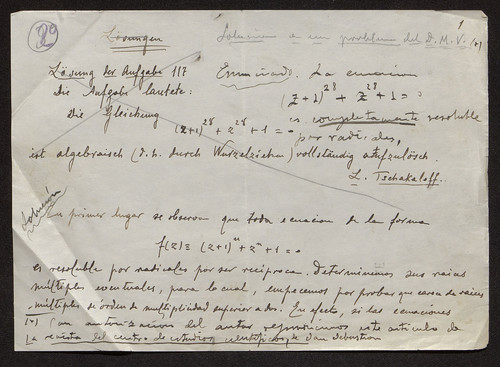 2º
1
Lösungen Solucion a un problema del D. M. V. (*)
Lösung der Aufgabe 117 Enunciado. La ecuacion
Die Aufgabe lautete: (z+1)^28 + z^28 + 1 = 0
Die Gleichung es completamente resoluble
(z+1)^28 + z^28 + 1 = 0 por radicales,
ist algebraisch (d.h. durch Wurzelzeichen) vollständig aufzulösen.
L. Tschakaloff.
Solución
En primer lugar se observa que toda ecuacion de la forma
f(z) ≡ (z+1)^n + z^n + 1 = 0
es resoluble por radicales por ser recíproca. Determinemos sus raices
múltiples eventuales, para lo cual, empecemos por probar que carece de raices
múltiples de órden de multiplicidad superior a dos. En efecto, si las ecuaciones
(*) Con autorizacion del autor reproducimos este artículo de
la revista del centro de estudios científicos de San Sebastian